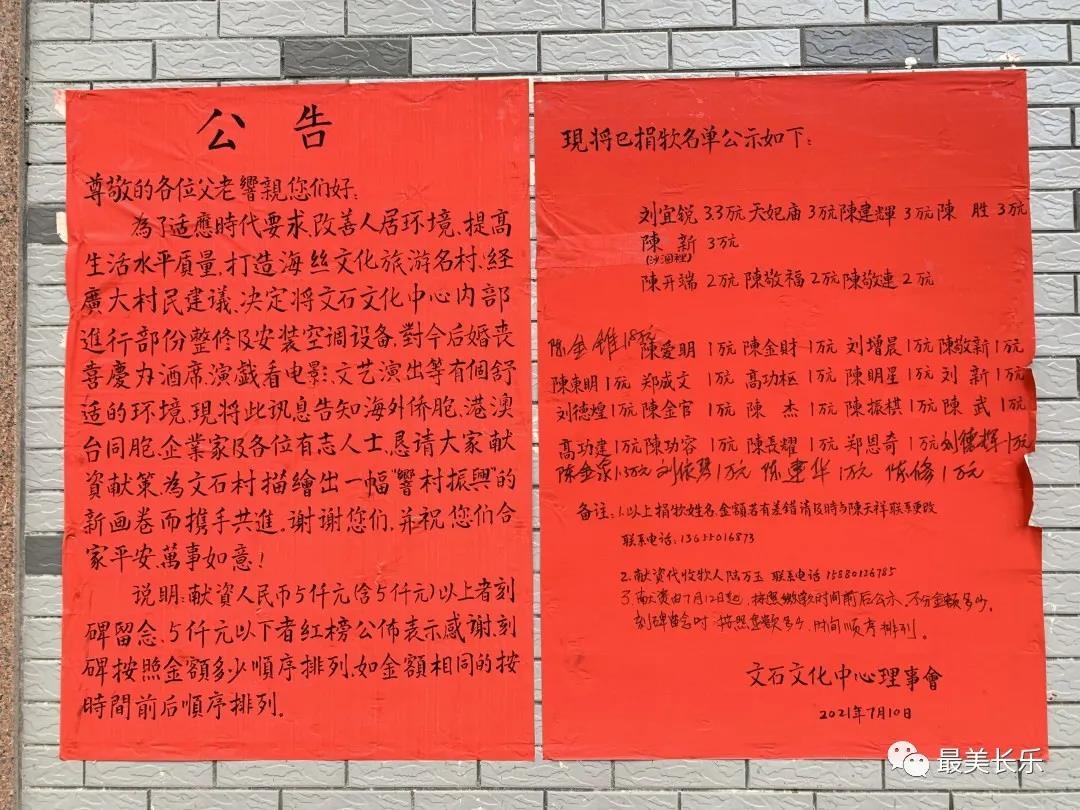 公告
尊敬的各位父老響親您们好:
為了适應時代要求,改善人居环境,提高
生活水平质量,打造海丝文化旅游名村,経
廣大村民建议,决定将文石文化中心内部
進行部份整修及安装空调设备,對今后婚丧
喜慶办酒席、演戲看电影、文艺演出等有個舒
适的环境,現将此讯息告知海外侨胞、港澳
台同胞、企業家及各位有志人士,恳请大家献
資献策,為文石村描繪出一幅“響村振興”的
新画卷而携手共進。谢谢您们,并祝您们合
家平安、萬事如意!
说明:献資人民币5仟元(含5仟元)以上者刻
碑留念,5仟元以下者红榜公佈表示感谢,刻
碑按照金額多少順序排列,如金額相同的按
時間前后順序排列。
現将已捐欵名单公示如下:
刘宜锐3.3万元 天妃庙3万元 陳建輝3万元 陳胜3万元
陳新3万元
(沙洄裡)
陳开端2万元 陳敬福2万元 陳敬連2万元
陈金鍾1.8万元 陳爱明1万元 陳金財1万元 刘增晨1万元 陳敬新1万元
陳東明1万元 郑成文1万元 高功枢1万元 陳明星1万元 刘新1万元
刘德煌1万元 陳金官1万元 陳杰1万元 陳振棋1万元 陳武1万元
高功建1万元 陳功容1万元 陳長耀1万元 郑恩奇1万元 刘德辉1万元
陈金泉1.3万元 刘依 1万元 陈建华1万元 陈修1万元
备注:1.以上捐欵姓名、金額若有差错请及時与陳天祥联系更改
联系电话:13655016873
2.献资代收欵人陆万玉 联系电话15880136785
3.献资由7月12日起,按照缴款时间前后公示,不分金額多少。
刻碑留念时,按照金额多少、时间顺序排列。
文石文化中心理事會
2021年7月10日
最美长乐